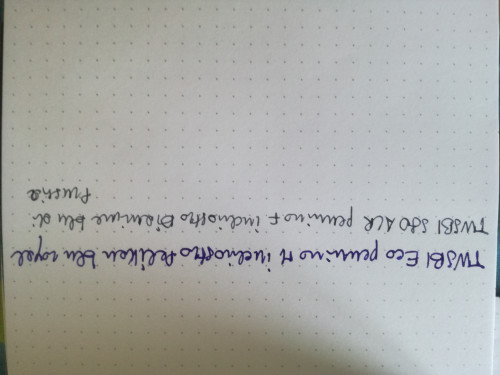 TWSBI Eco pennino M inchiostro Pelikan blu royal
TWSBI 580 ALR pennino F inchiostro Diamine blu di
Prussia